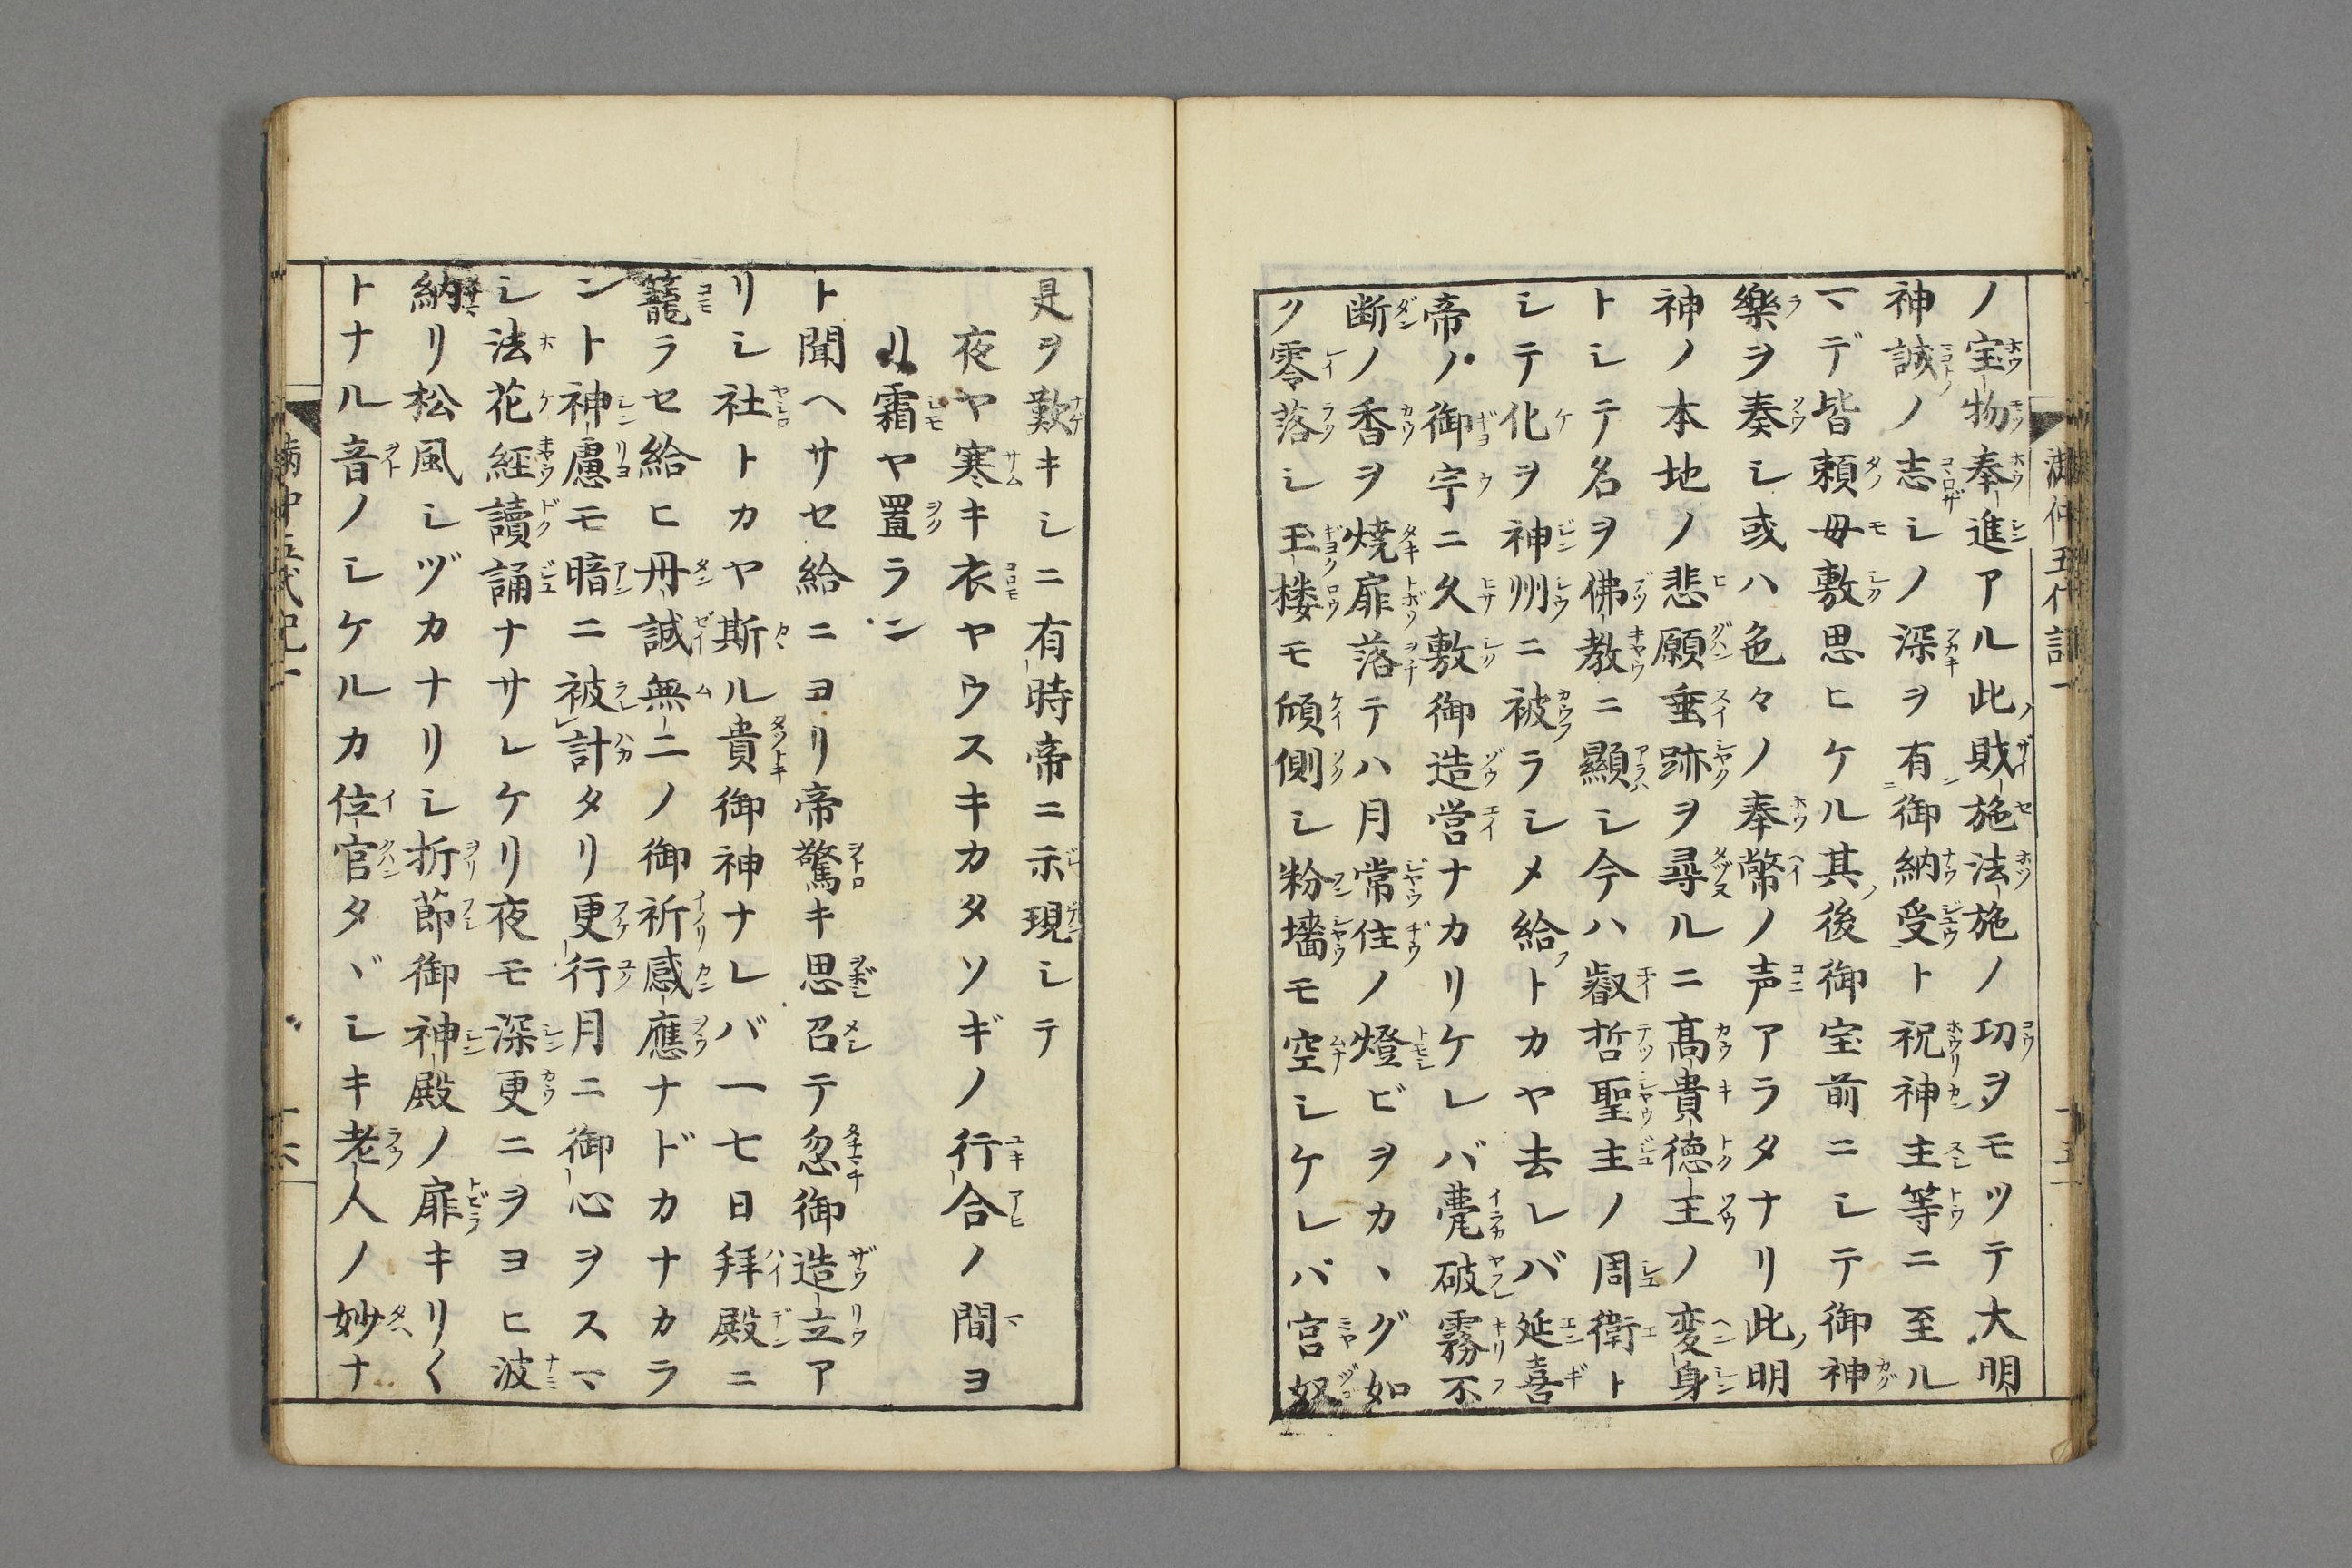 満仲五代記一
ノ宝物奉進アル此財施法施ノ功ヲモツテ大明
神誠ノ志シノ深ヲ有御納受ト祝神主等ニ至ル
マデ皆頼毋敷思ヒケル其後御宝前ニシテ御神
樂ヲ奏シ或ハ色々ノ奉幣ノ声アラタナリ此明
神ノ本地ノ悲願垂跡ヲ尋ルニ髙貴徳王ノ変身
トシテ名ヲ佛教ニ顯シ今ハ叡哲聖主ノ周衛ト
シテ化ヲ神州ニ被ラシメ給トカヤ去レバ延喜
帝ノ御宇ニ久敷御造営ナカリケレバ甍破霧不
断ノ香ヲ焼扉落テハ月常住ノ燈ビヲカヽグ如
ク零落シ玉楼モ傾側シ粉墻モ空シケレバ宮奴
是ヲ歎キシニ有時帝ニ示現シテ
夜ヤ寒キ衣ヤウスキカタソギノ行合ノ間ヨ
リ霜ヤ置ラン
ト聞ヘサセ給ニヨリ帝驚キ思召テ忽御造立ア
リシ社トカヤ斯ル貴御神ナレバ一七日拜殿ニ
籠ラセ給ヒ丹誠無二ノ御祈感應ナドカナカラ
ント神慮モ暗ニ被計タリ更行月ニ御心ヲスマ
シ法花經讀誦ナサレケリ夜モ深更ニヲヨヒ波
納リ松風シヅカナリシ折節御神殿ノ扉キリ〱
トナル音ノシケルカ位官タヾシキ老人ノ妙ナ